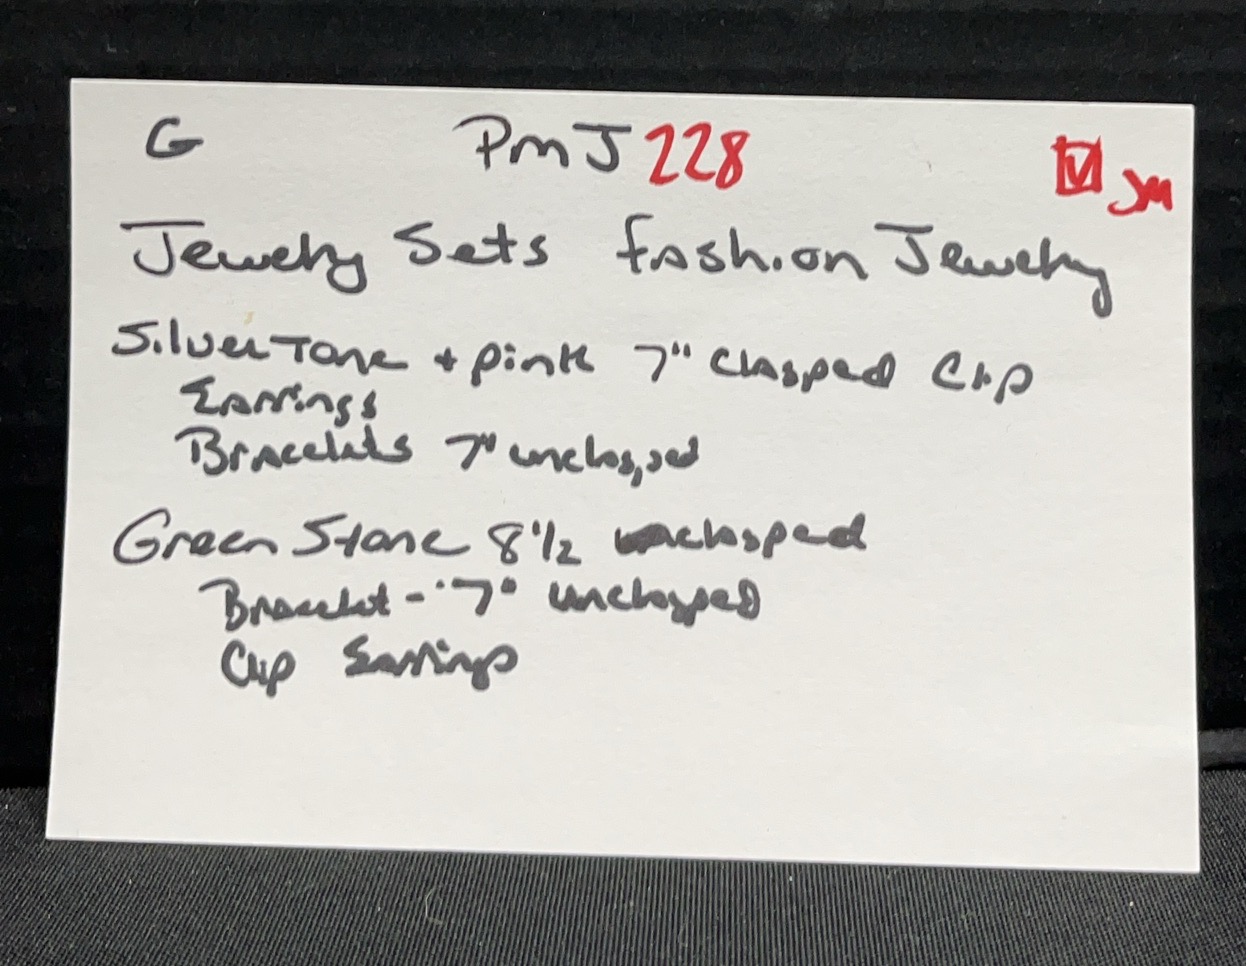 G PmJ 228 JM
Jewelry Sets Fashion Jewelry
Silver Tone + pink 7" Clasped Clip
Earrings
Bracelets 7" unclasped
Green Stone 8 1/2 unclasped
Bracelet - 7" unclasped
Clip Earrings